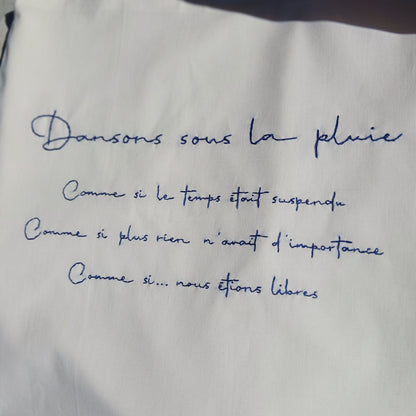 Dansons sous la pluie
Comme si le temps était suspendu
Comme si plus rien n'avait d'importance
Comme si... nous étions libres